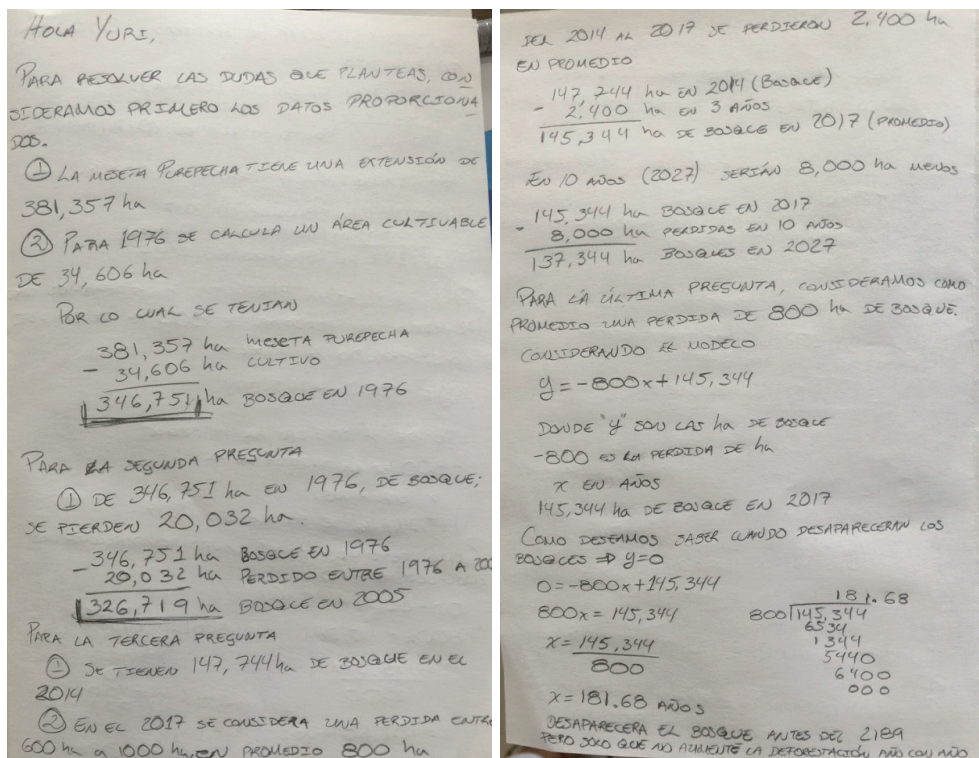 HOLA YURI,
PARA RESOLVER LAS DUDAS QUE PLANTEAS, CON
SIDERAMOS PRIMERO LOS DATOS PROPORCIONA
DOS.
① LA MESETA PUREPECHA TIENE UNA EXTENSIÓN DE
381,357 ha
② PARA 1976 SE CALCULA UN ÁREA CULTIVABLE
DE 34,606 ha
POR LO CUAL SE TENIAN
381,357 ha MESETA PUREPECHA
- 34,606 ha CULTIVO
346,751 ha BOSQUE EN 1976
PARA LA SEGUNDA PREGUNTA
① DE 346,751 ha EN 1976, DE BOSQUE;
SE PIERDEN 20,032 ha.
- 346,751 ha BOSQUE EN 1976
20,032 ha PERDIDO ENTRE 1976 A 200
326,719 ha BOSQUE EN 2005
PARA LA TERCERA PREGUNTA
① SE TIENEN 147,744 ha DE BOSQUE EN EL
2014
② EN EL 2017 SE CONSIDERA UNA PERDIDA ENTRE
600 ha a 1000 ha, EN PROMEDIO 800 ha
DEL 2014 AL 2017 SE PERDIERON 2,400 ha
EN PROMEDIO
- 147,744 ha EN 2014 (BOSQUE)
2,400 ha EN 3 AÑOS
145,344 ha DE BOSQUE EN 2017 (PROMEDIO)
EN 10 AÑOS (2027) SERÍAN 8,000 ha MENOS
- 145,344 ha BOSQUE EN 2017
8,000 ha PERDIDAS EN 10 AÑOS
137,344 ha BOSQUES EN 2027
PARA LA ÚLTIMA PREGUNTA, CONSIDERAMOS COMO
PROMEDIO UNA PERDIDA DE 800 ha DE BOSQUE.
CONSIDERANDO EL MODELO
y = -800x + 145,344
DONDE "y" SON LAS ha DE BOSQUE
-800 ES LA PERDIDA DE ha
x EN AÑOS
145,344 ha DE BOSQUE EN 2017
COMO DESEAMOS SABER CUANDO DESAPARECERAN LOS
BOSQUES ⇒ y=0
0 = -800x + 145,344
800x = 145,344
x = 145,344
800
x = 181.68 AÑOS
181.68
800 145,344
6534
1344
5440
6400
000
DESAPARECERA EL BOSQUE ANTES DEL 2189
PERO SOLO QUE NO AUMENTE LA DEFORESTACIÓN AÑO CON AÑO